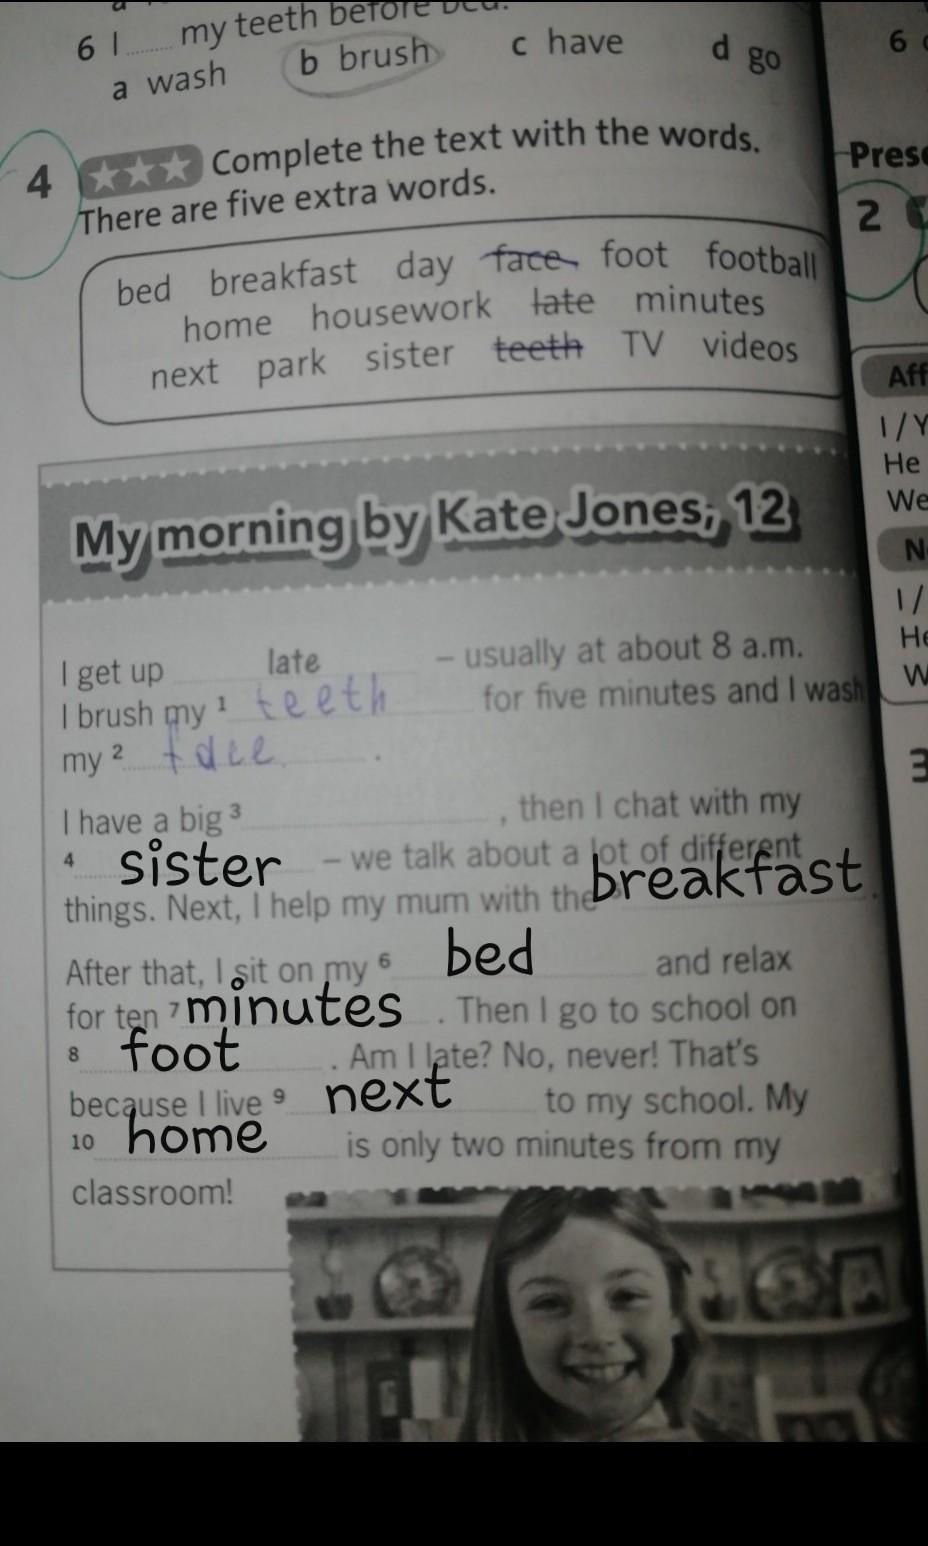 6 I ........ my teeth before bed.
a wash b brush c have d go
4 Complete the text with the words.
There are five extra words.
bed breakfast day face foot football
home housework late minutes
next park sister teeth TV videos
My morning by Kate Jones, 12
I get up late – usually at about 8 a.m.
I brush my 1 teeth for five minutes and I wash
my 2 face .
I have a big 3 , then I chat with my
4 sister – we talk about a lot of different
things. Next, I help my mum with the breakfast.
After that, I sit on my 6 bed and relax
for ten 7 minutes . Then I go to school on
8 foot . Am I late? No, never! That's
because I live 9 next to my school. My
10 home is only two minutes from my
classroom!
6
Pres
2
Aff
I / Y
He
We
N
I /
He
W
3